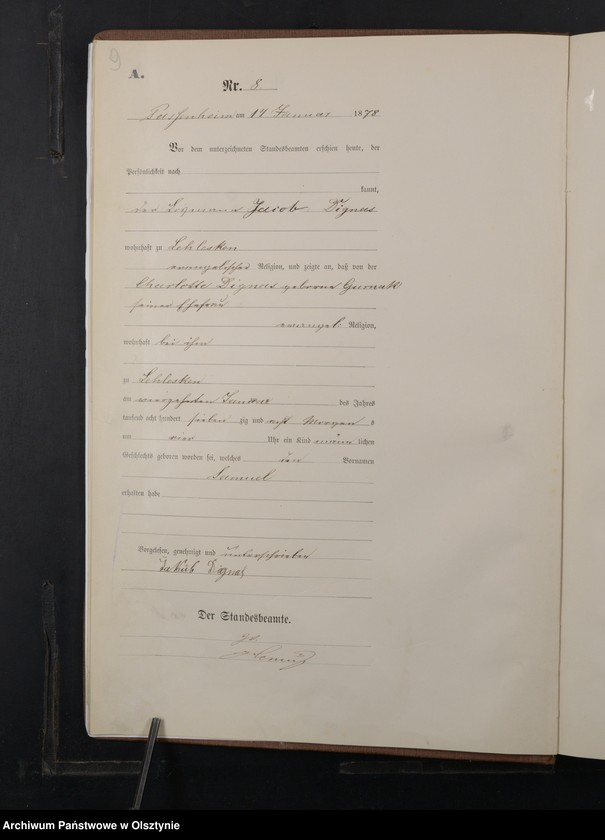 9
A.
Nr. 8
Passenheim am 14 Januar 1878
Vor dem unterzeichneten Standesbeamten erschien heute, der
Persönlichkeit nach
kannt,
der Eigmann Jacob Dignas
wohnhaft zu Schlesken
evangelischer Religion, und zeigte an, daß von der
Charlotte Dignas geborene Gurnatk
seiner Ehefrau
evangel. Religion,
wohnhaft bei ihm
zu Schlesken
am vierzehnten Januar des Jahres
tausend acht hundert sieben zig und acht Morgens
um vier Uhr ein Kind männ lichen
Geschlechts geboren worden sei, welches den Vornamen
Samuel
erhalten habe
Vorgelesen, genehmigt und unterschrieben
Jakub Dignas
Der Standesbeamte.
Archiwum Państwowe w Olsztynie